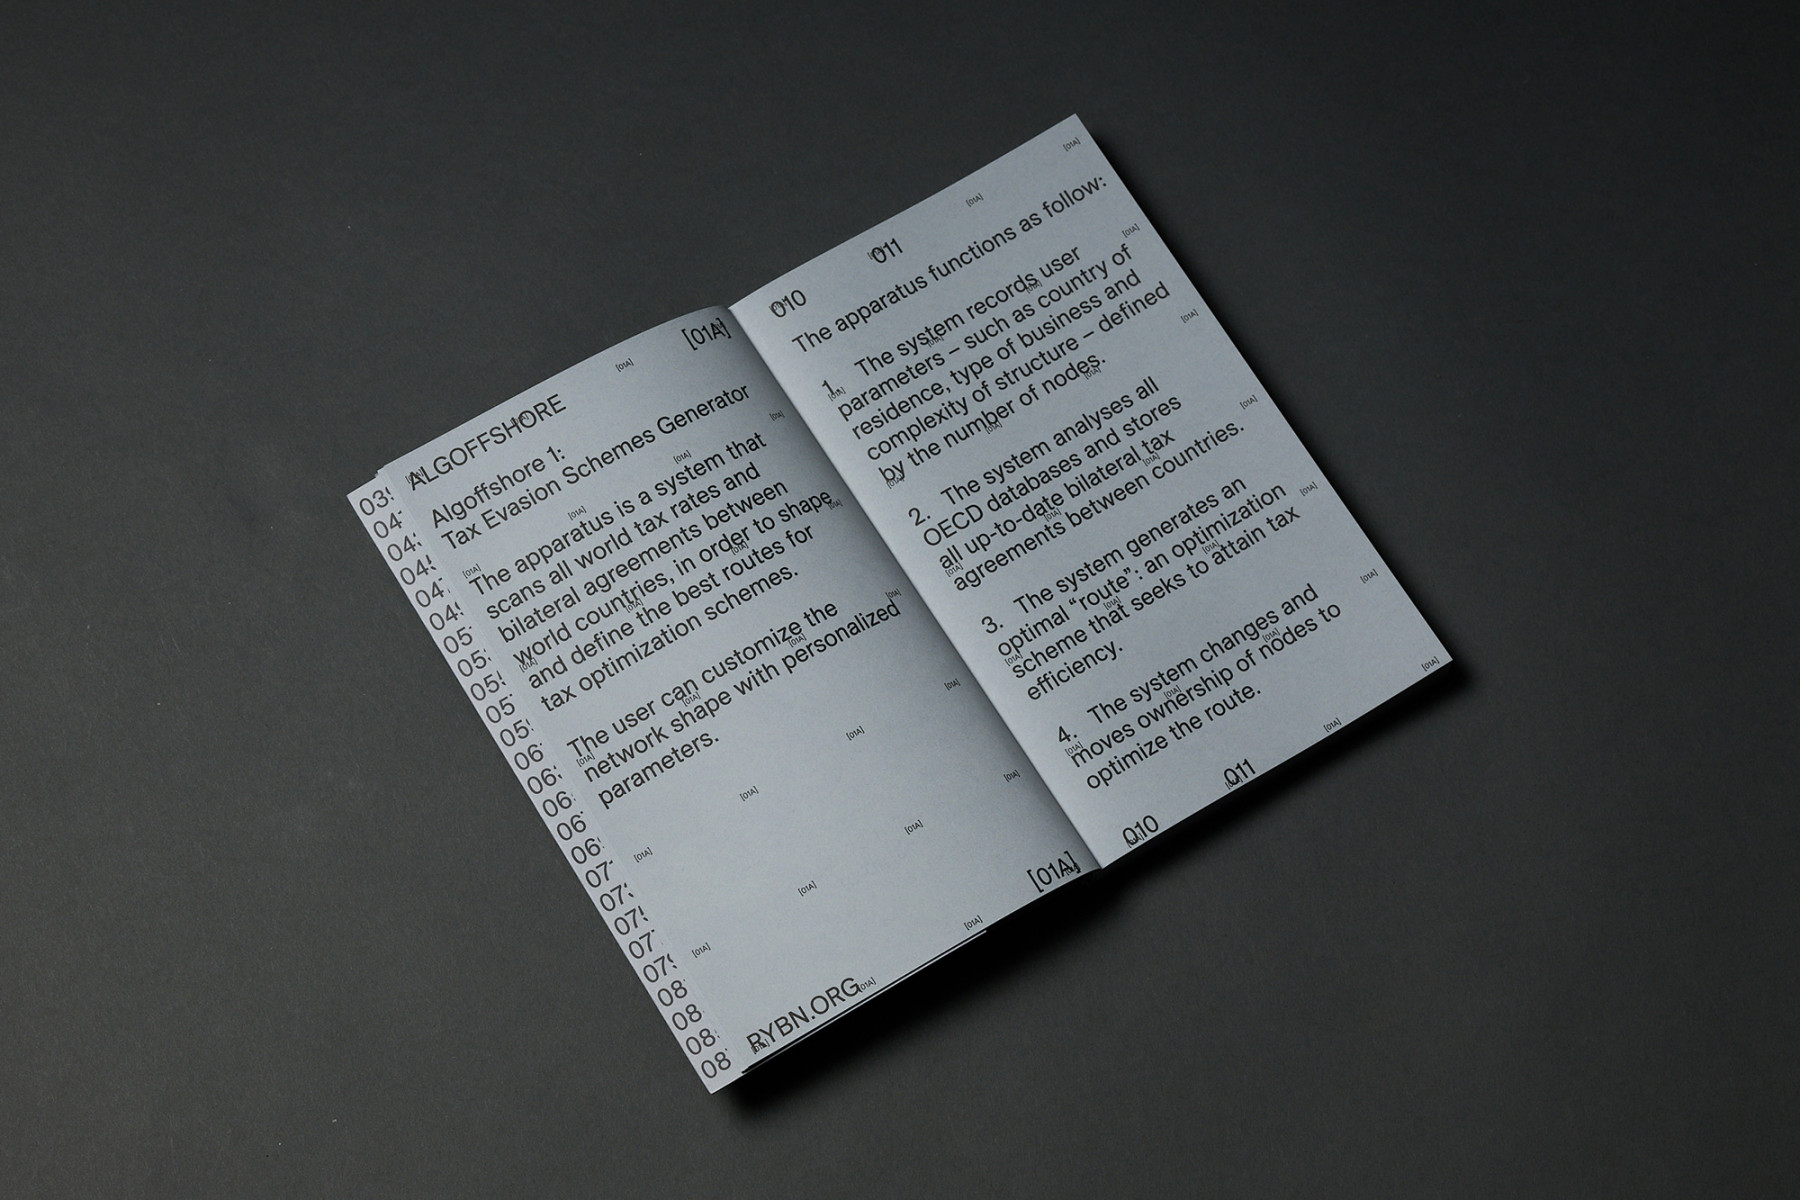 ALGOFFSHORE
[01A]
Algoffshore 1:
Tax Evasion Schemes Generator
The apparatus is a system that
scans all world tax rates and
bilateral agreements between
world countries, in order to shape
and define the best routes for
tax optimization schemes.
The user can customize the
network shape with personalized
parameters.
RYBN.ORG
[01A]
010
011
The apparatus functions as follow:
1. The system records user
parameters – such as country of
residence, type of business and
complexity of structure – defined
by the number of nodes.
2. The system analyses all
OECD databases and stores
all up-to-date bilateral tax
agreements between countries.
3. The system generates an
optimal “route”: an optimization
scheme that seeks to attain tax
efficiency.
4. The system changes and
moves ownership of nodes to
optimize the route.
010
011